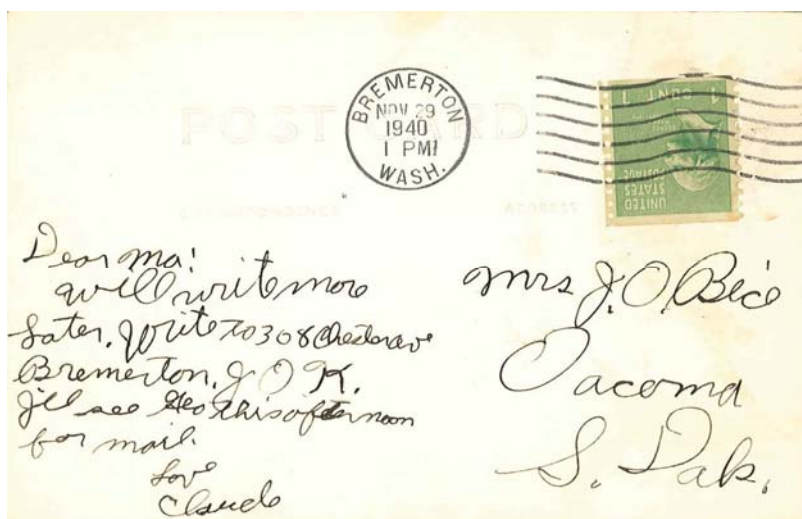 POST CARD
BREMERTON
NOV 29
1940
1 PM
WASH.
1 CENT 1
UNITED
STATES
POSTAGE
Dear Ma!
will write more
Later. Write to 308 Chester ave
Bremerton. J O K.
I'll see Geo this afternoon
for mail.
Love
Claude
Mrs J. O. Bice
Oacoma
S. Dak.